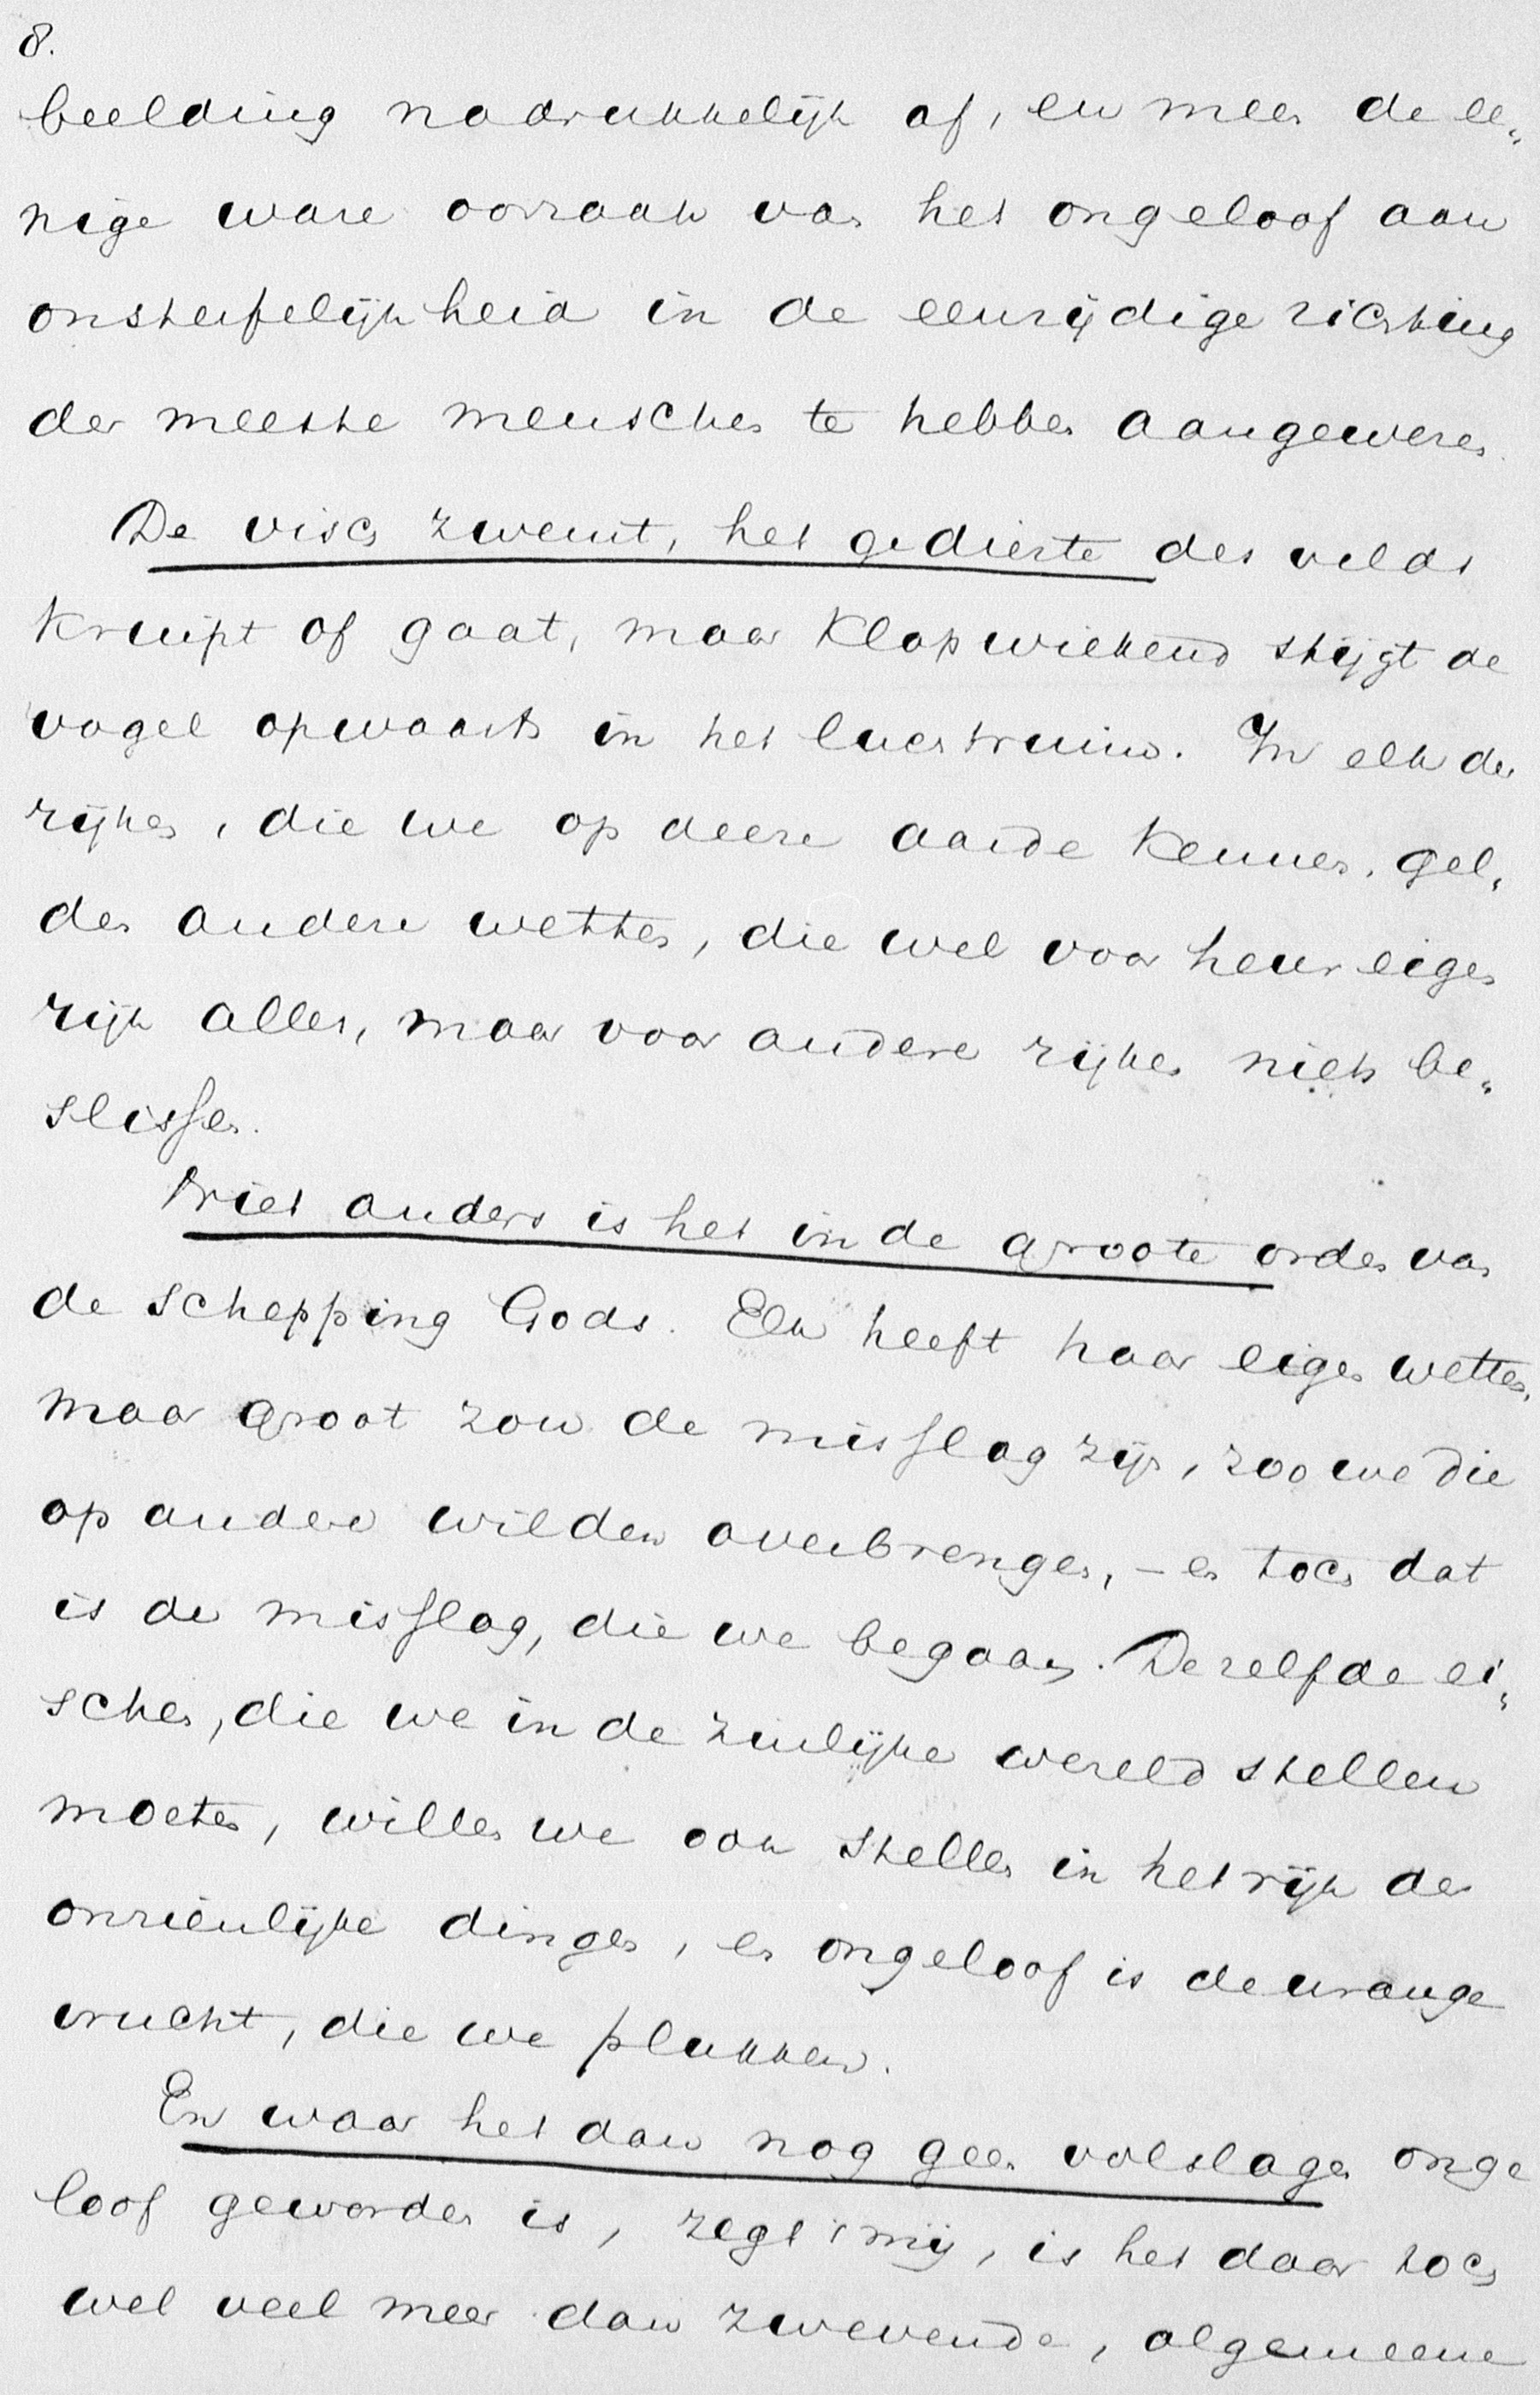 8.
beelding nadrukkelijk af, en meen de ee„
nige ware oorzaak van het ongeloof aan
onsterfelijkheid in de eenzijdige richting
der meeste menschen te hebben aangewezen.
De visch zwemt, het gedierte des velds
kruipt of gaat, maar klapwiekend stijgt de
vogel opwaarts in het luchtruim. In elk der
rijken, die we op deeze aarde kennen, gel„
den andere wetten, die wel voor heur eigen
rijk alles, maar voor andere rijken niets be„
slissen.
Niet anders is het in de groote orden van
de schepping Gods. Elk heeft haar eigen wetten,
maar groot zou de misslag zijn, zoo we die
op andere wilden overbrengen, – en toch dat
is de misslag, die we begaan. Dezelfde ei„
schen, die we in de zinlijke wereld stellen
moeten, willen we ook stellen in het rijk der
onzienlijke dingen, en ongeloof is de wrange
vrucht, die we plukken.
En waar het dan nog geen volslagen onge
loof geworden is, zegt 't mij, is het daar toch
wel veel meer dan zwevende, algemeene